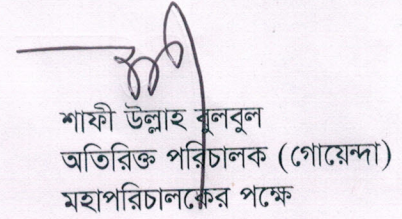 শাফী উল্লাহ বুলবুল
অতিরিক্ত পরিচালক (গোয়েন্দা)
মহাপরিচালকের পক্ষে